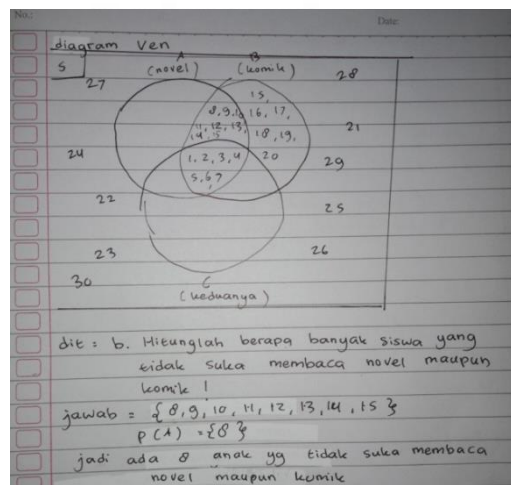 No.:
Date:
diagram Ven
S
A
(novel)
B
(komik)
27
28
15,
8, 9, 10
16, 17,
11, 12, 13,
18, 19,
14, 15
21
24
1, 2, 3, 4
20
29
5, 6, 7
22
25
23
26
30
C
(keduanya)
dit : b. Hitunglah berapa banyak siswa yang
tidak suka membaca novel maupun
komik !
jawab = { 8, 9, 10, 11, 12, 13, 14, 15 }
P (A) = {8}
jadi ada 8 anak yg tidak suka membaca
novel maupun komik